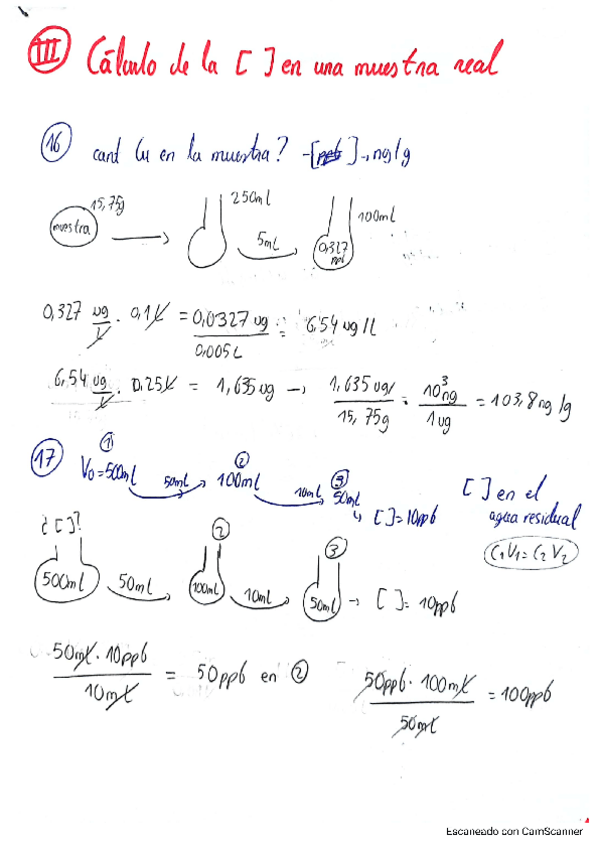 III Cálculo de la [ ] en una muestra real
16 cant Cu en la muestra? -[ppb] → ng/g
muestra 15,75g 250ml 5ml 0,327 ppb 100ml
0,327 ug/L · 0,1L = 0,0327 ug / 0,005L = 6,54 ug/L
6,54 ug/L · 0,25L = 1,635 ug → 1,635 ug / 15,75g · 10³ ng / 1 ug = 103,8 ng/g
17 ① V0=500ml 50ml → ② 100ml 10ml → ③ 50ml
↳ [ ]=10ppb
[ ] en el
agua residual
C1V1=C2V2
¿[ ]? 500ml 50ml ② 100ml 10ml ③ 50ml → [ ]= 10ppb
50ml · 10ppb / 10ml = 50ppb en ②
50ppb · 100ml / 50ml = 100ppb
Escaneado con CamScanner